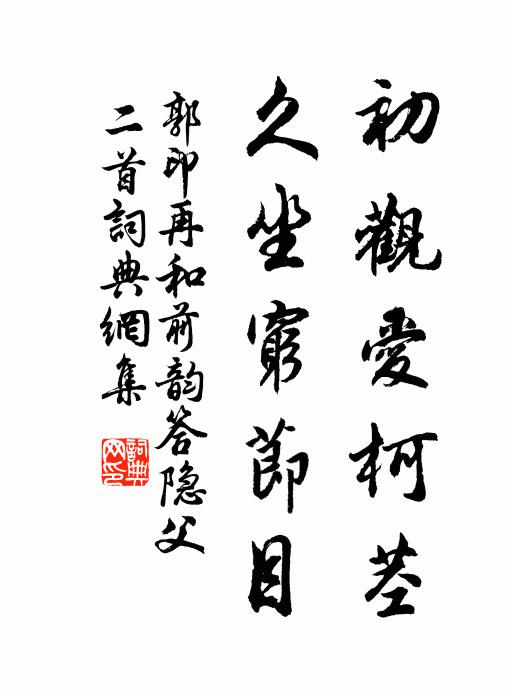 初觀愛柯莖
久坐窮節目
郭印再和前韵答隐父
二首詞典網集
詞典網印